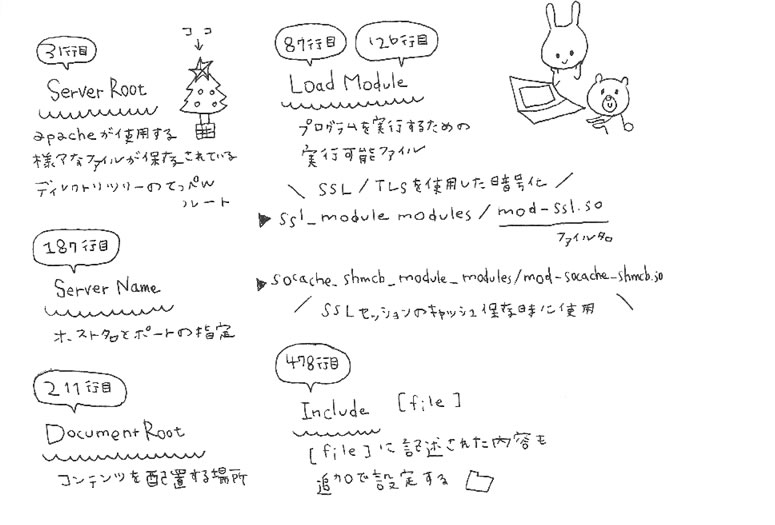 31行目
ココ
Server Root
apacheが使用する
様々なファイルが保存されている
ディレクトリツリーのてっぺん
ルート
187行目
Server Name
ホスト名とポートの指定
211行目
Document Root
コンテンツを配置する場所
87行目 126行目
Load Module
プログラムを実行するための
実行可能ファイル
\ SSL / TLSを使用した暗号化 /
▶ ssl_module modules / mod-ssl.so
ファイル名
▶ socache_shmcb_module_modules/mod-socache-shmcb.so
/ SSLセッションのキャッシュ保存時に使用 \
478行目
Include [file]
[file]に記述された内容も
追加で設定する